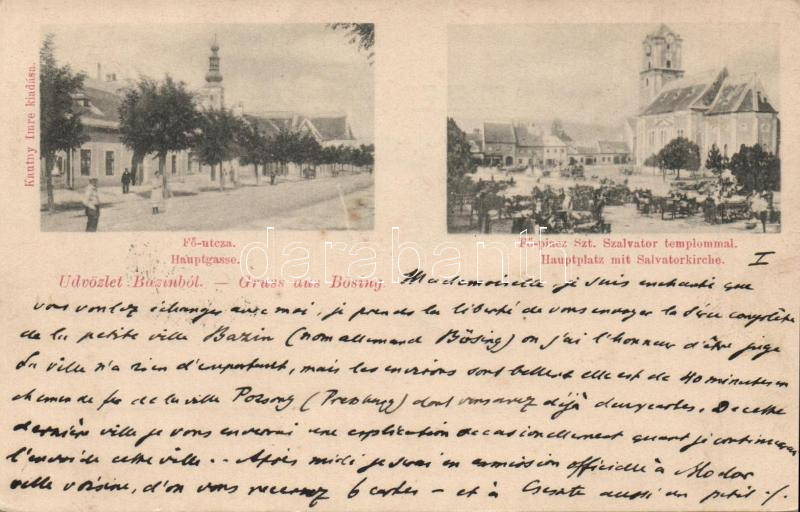 Kautny Imre kiadása.
Fő-utcza.
Hauptgasse.
Fő-piacz Szt. Szalvator templommal.
Hauptplatz mit Salvatorkirche.
I
Üdvözlet Bazinból. — Gruss aus Bösing.
darabanth
Mademoiselle, je suis enchanté que
vous voulez échanger avec moi, je prends la liberté de vous envoyer la série complète
de la petite ville Bazin (nom allemand Bösing) où j'ai l'honneur d'être juge
La ville n'a rien d'important, mais les environs sont belles et elle est de 40 minutes en
chemin de fer de la ville Pozsony (Presburg) dont vous avez déjà deux cartes. De cette
dernière ville je vous enverrai une explication occasionellement quant je continuerai
l'envoi de cette ville. . Après midi je serai en commission officielle à Modor
ville voisine, d'on vous recevrez 6 cartes — et à aussi un petit ./.